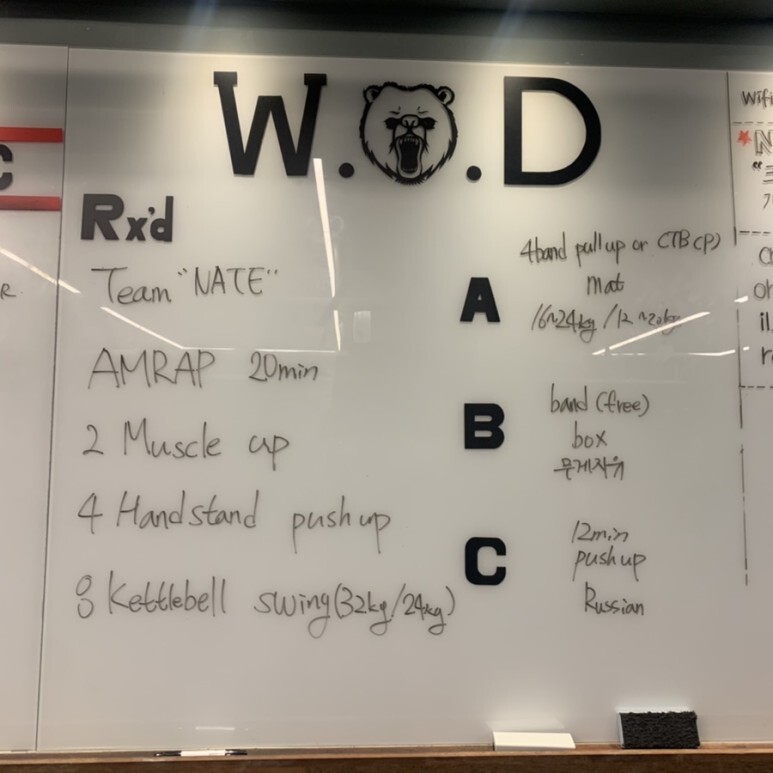 W.O.D
Rx'd
Team "NATE"
AMRAP 20min
2 Muscle up
4 Handstand push up
8 Kettlebell swing (32kg/24kg)
A
4band pull up or CTB(P)
mat
16~24kg / 12~20kg
B
band (free)
box
무게자유
C
12min
push up
Russian
C
R
Wifi